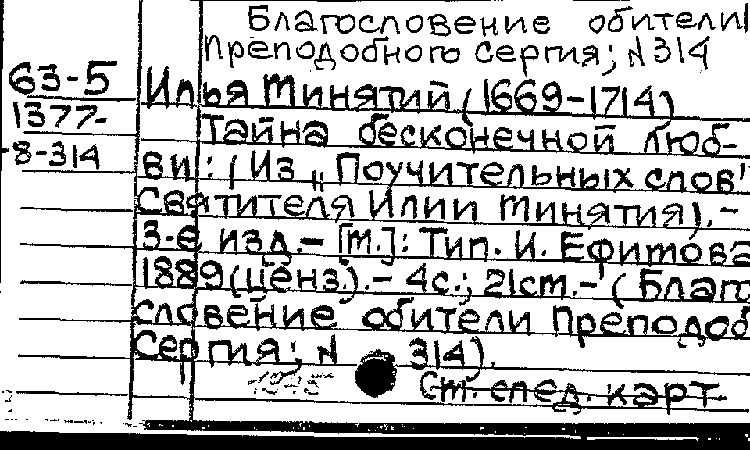 Благословение обители
Преподобного Сергия; N 314
63-5 Илья Минятий (1669-1714)
1377- Тайна бесконечной люб-
8-314 ви: (Из „Поучительных слов"
Святителя Илии Минятия). -
3-е изд. - [М.]: Тип. И. Ефимова
1889 (ценз.). - 4с.; 21см. - (Благо
словение обители Преподоб
Сергия; N 314).
См. след. карт.